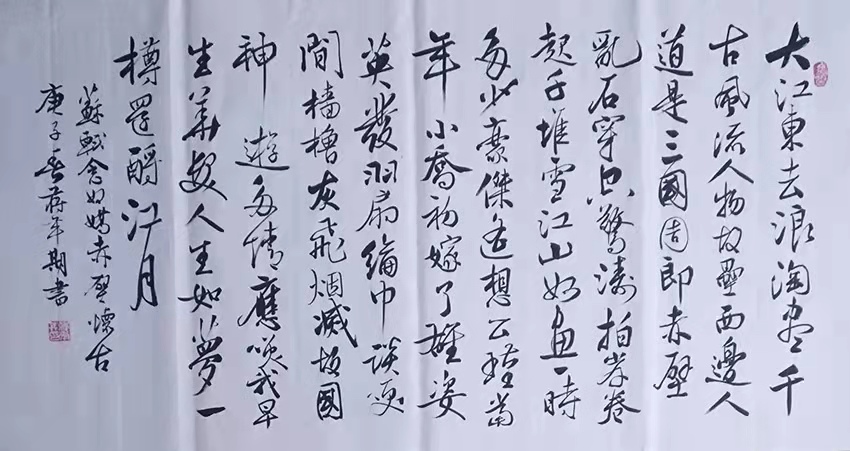 大江東去浪淘盡千
古風流人物故壘西邊人
道是三國周郎赤壁
亂石穿空驚濤拍岸卷
起千堆雪江山如畫一時
多少豪傑遙想公瑾當
年小喬初嫁了雄姿
英發羽扇綸巾談笑
間檣櫓灰飛烟滅故國
神遊多情應笑我早
生華髮人生如夢一
樽還酹江月
蘇軾念奴嬌赤壁懷古
庚子春蔣年期書